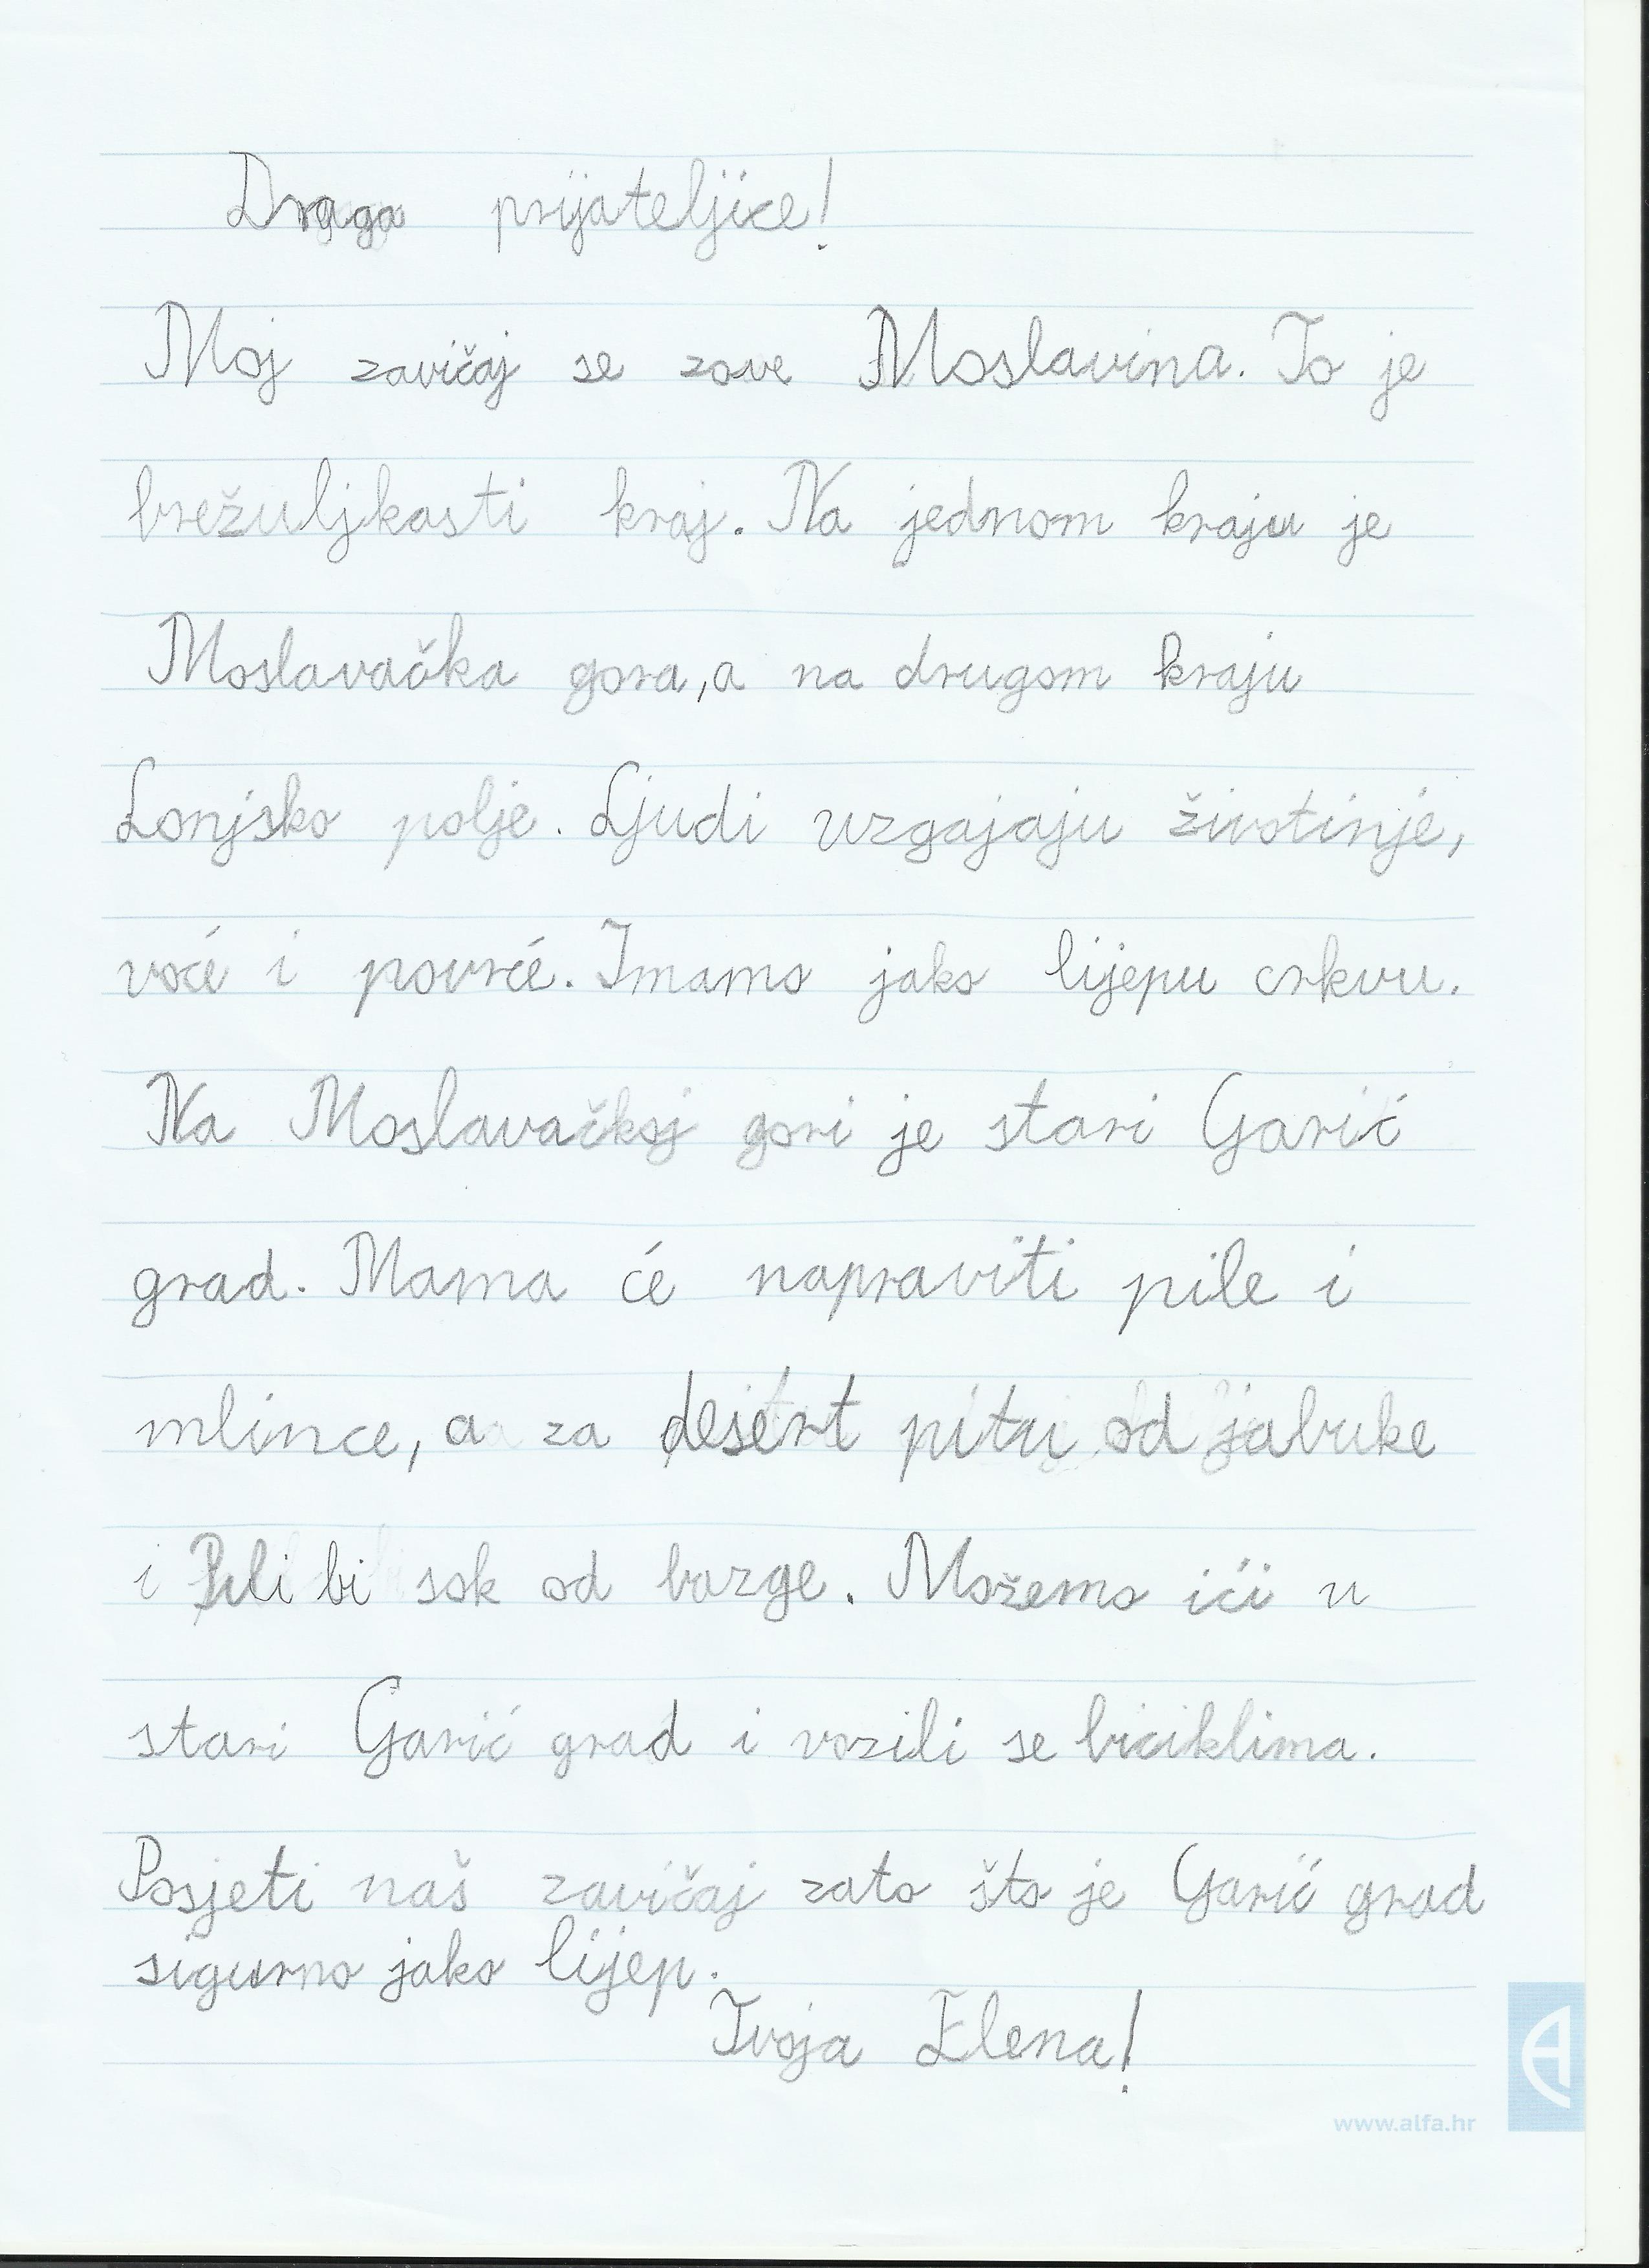 Draga prijateljice!
Moj zavičaj se zove Moslavina. To je
brežuljkasti kraj. Na jednom kraju je
Moslavačka gora, a na drugom kraju
Lonjsko polje. Ljudi uzgajaju životinje,
voće i povrće. Imamo jako lijepu crkvu.
Na Moslavačkoj gori je stari Garić
grad. Mama će napraviti pile i
mlince, a za desert pitu od jabuke
i Pili bi sok od bazge. Možemo ići u
stari Garić grad i vozili se biciklima.
Posjeti naš zavičaj zato što je Garić grad
sigurno jako lijep.
Tvoja Elena!
www.alfa.hr